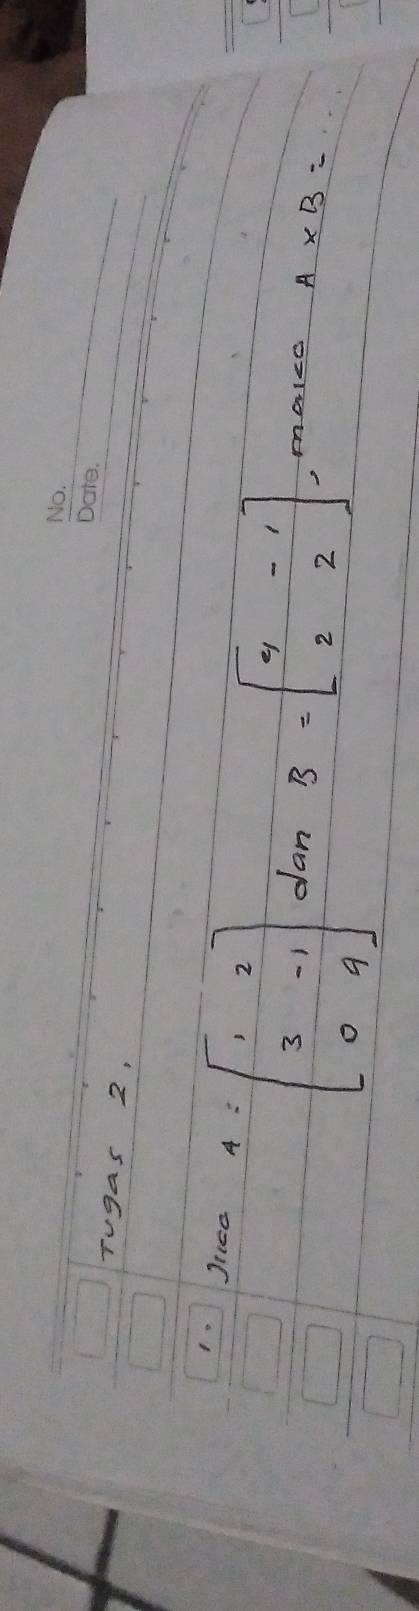 No.
Date.
Tugas 2,
1. Jika A = [1 2
3 -1
0 4] dan B = [4 -1
2 2], maka A × B = ....